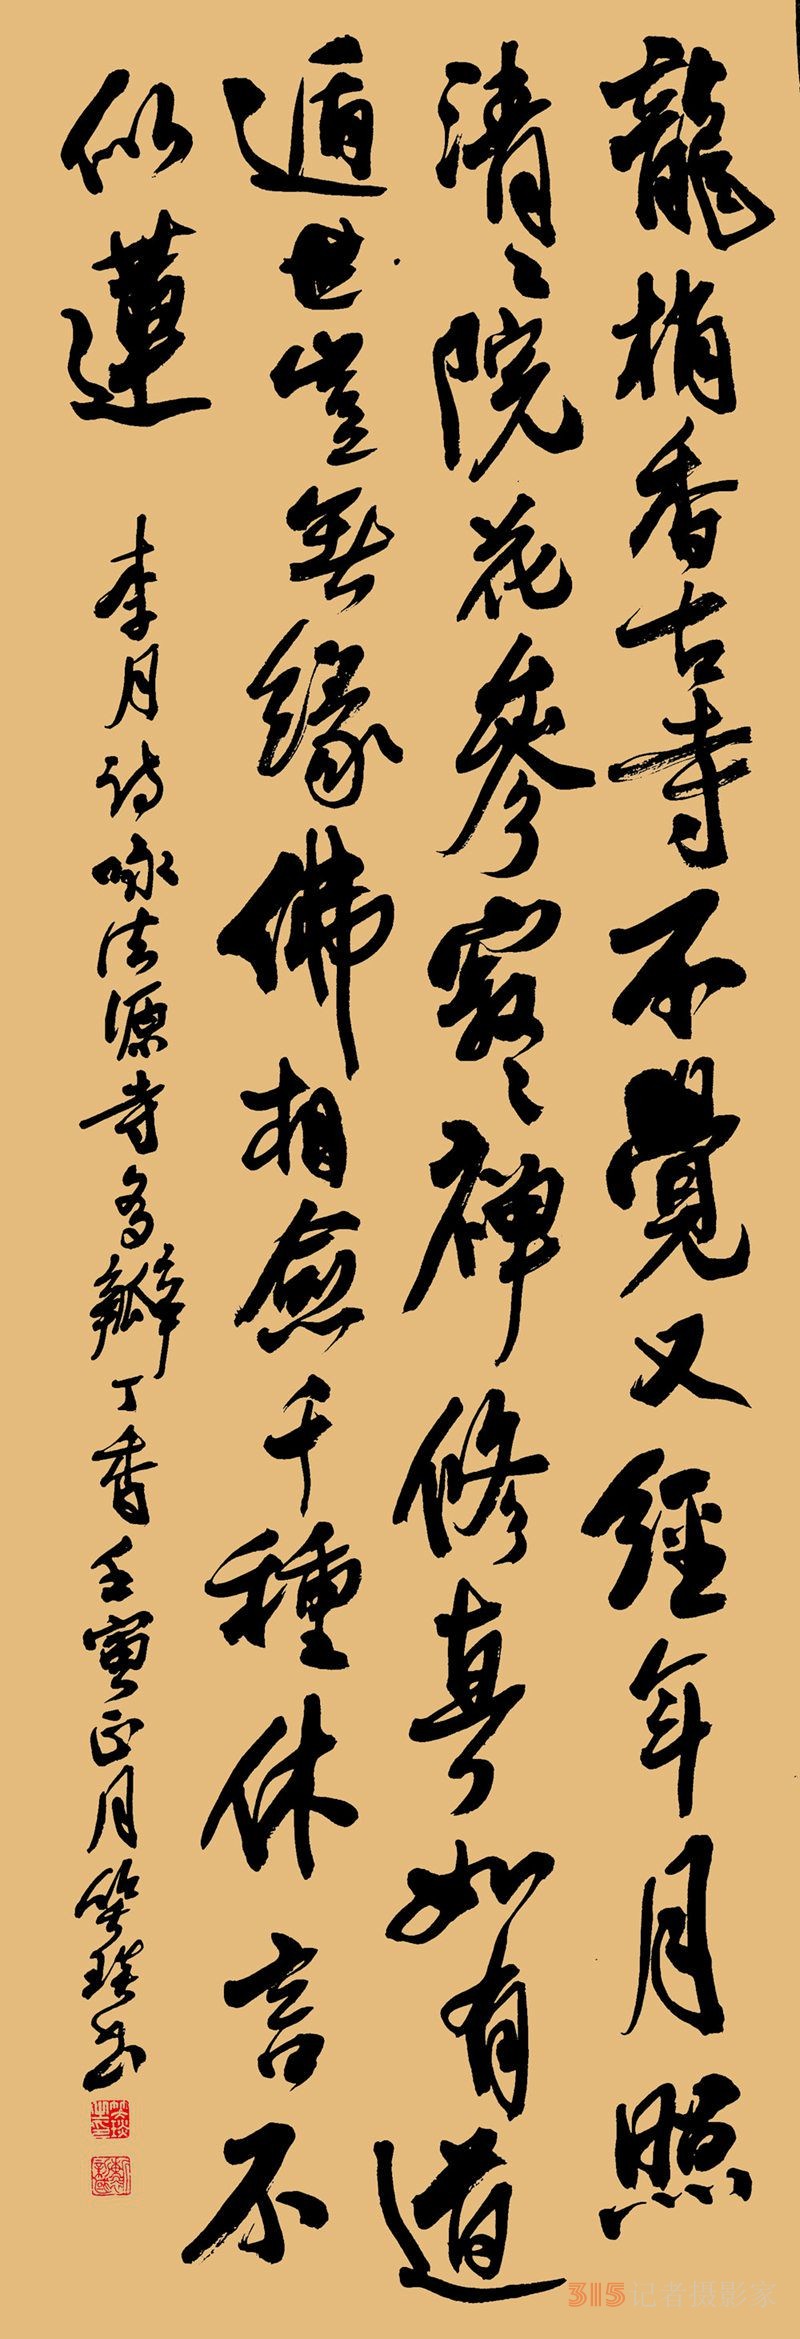 龍梢香古寺不覺又經年月照
清〻院花參寂〻禪修真如有道
遁世豈無緣佛相愈千種休言不
似蓮
李月詩咏法源寺多瓣丁香壬寅正月笑琰书
315记者摄影家